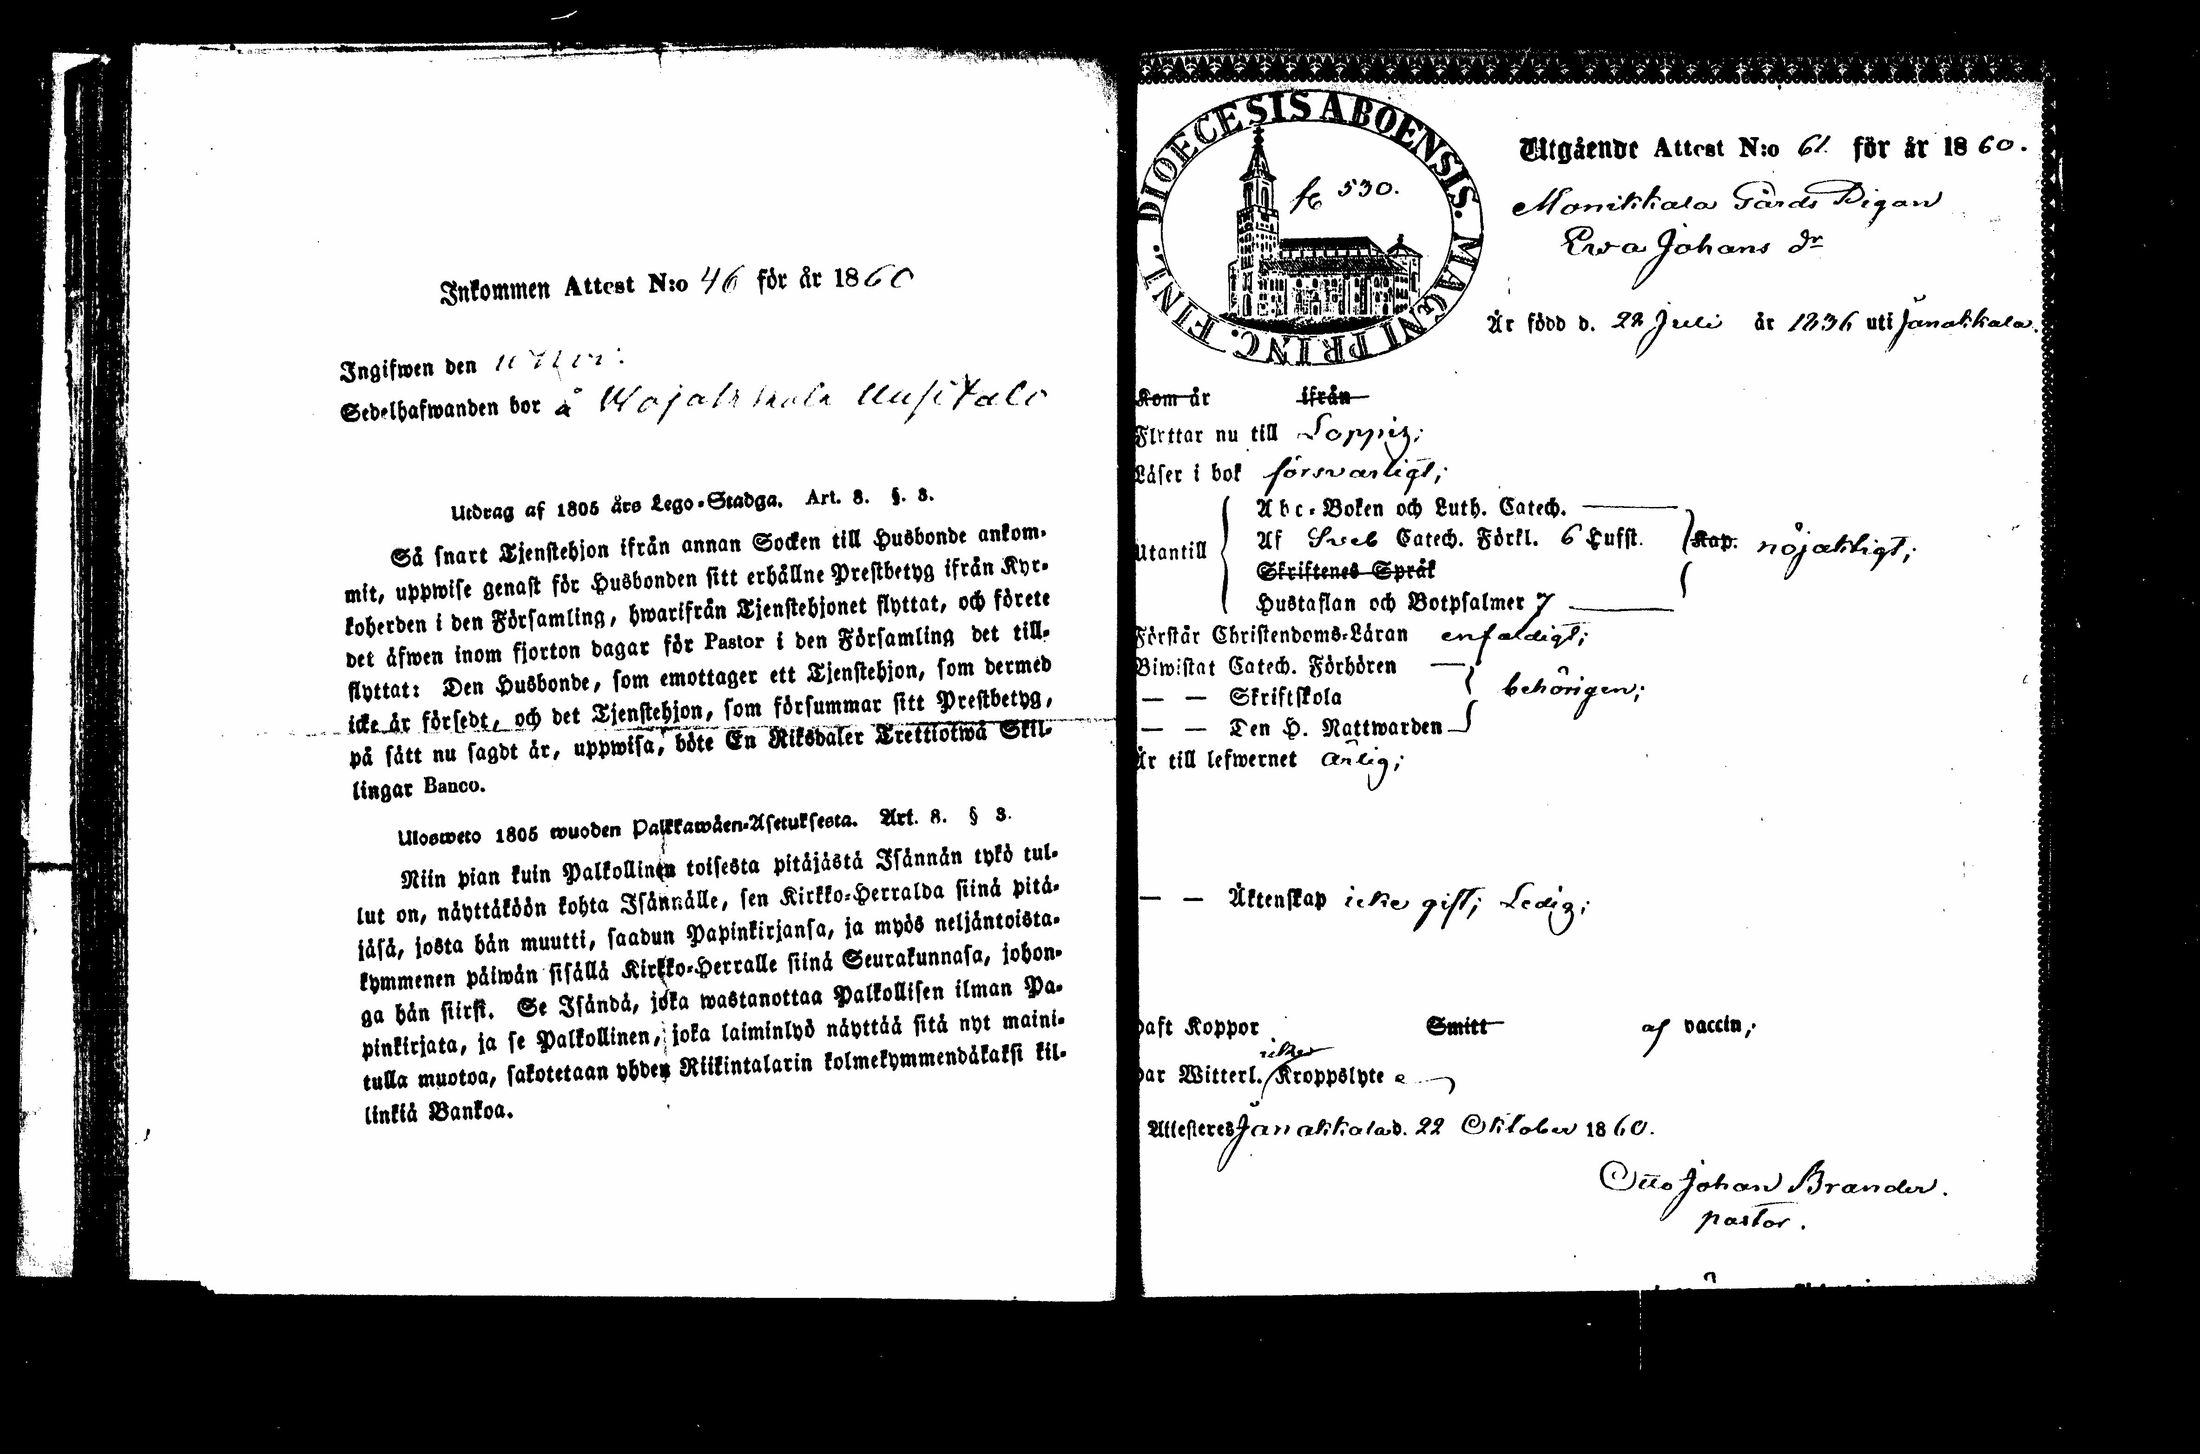 Inkommen Attest N:o 46 för år 1860
Ingifwen den 11 Nov:
Sedelhafwanden bor å Wojakkala Uusitalo
Utdrag af 1805 års Lego-Stadga. Art. 8. §. 3.
Så snart Tjenstehjon ifrån annan Socken till Husbonde ankom-
mit, uppwise genast för Husbonden sitt erhållne Prestbetyg ifrån Kyr-
koherden i den Församling, hwarifrån Tjenstehjonet flyttat, och förete
det äfwen inom fjorton dagar för Pastor i den Församling det till-
flyttat: Den Husbonde, som emottager ett Tjenstehjon, som dermed
icke är försedt, och det Tjenstehjon, som försummar sitt Prestbetyg,
på sätt nu sagdt är, uppwisa, böte En Riksdaler Trettiotwå Skil-
lingar Banco.
Ulosweto 1805 wuoden Palkkawäen-Asetuksesta. Art. 8. § 3.
Niin pian kuin Palkollinen toisesta pitäjästä Isännän tykö tul-
lut on, näyttäköön kohta Isännälle, sen Kirkko-Herralda siinä pitä-
jäsä, josta hän muutti, saadun Papinkirjansa, ja myös neljäntoista-
kymmenen päiwän sisällä Kirkko-Herralle siinä Seurakunnasa, johon-
ga hän siirsi. Se Isändä, joka wastanottaa Palkollisen ilman Pa-
pinkirjata, ja se Palkollinen, joka laiminlyö näyttää sitä nyt maini-
tulla muotoa, sakotetaan yhden Riikintalarin kolmekymmendäkaksi kil-
linkiä Bankoa.
DIOECESIS ABOENSIS. MAGNI PRINC. FINL.
fo 530.
Utgående Attest N:o 61 för år 1860.
Monikkala Gårds Pigan
Ewa Johans dr
Är född d. 22 Juli år 1836 uti Janakkala.
Kom år ifrån
Flyttar nu till Loppis;
Läser i bok försvarligt;
Utantill
Abc-Boken och Luth. Catech.
Af Sveb Catech. Förkl. 6 Hufst. Kap. nöjaktigt;
Skriftenes Språk
Hustaflan och Botpsalmer 7
Förstår Christendoms-Läran enfaldigt;
Biwistat Catech. Förhören
— — Skriftskola behörigen;
— — Den H. Nattwarden
Är till lefwernet ärlig;
— — Äktenskap icke gift; Ledig;
haft Koppor Smitt af vaccin;
har Witterl. icke Kroppslyte
Attesteres Janakkala d. 22 Oktober 1860.
Otto Johan Brander.
pastor.